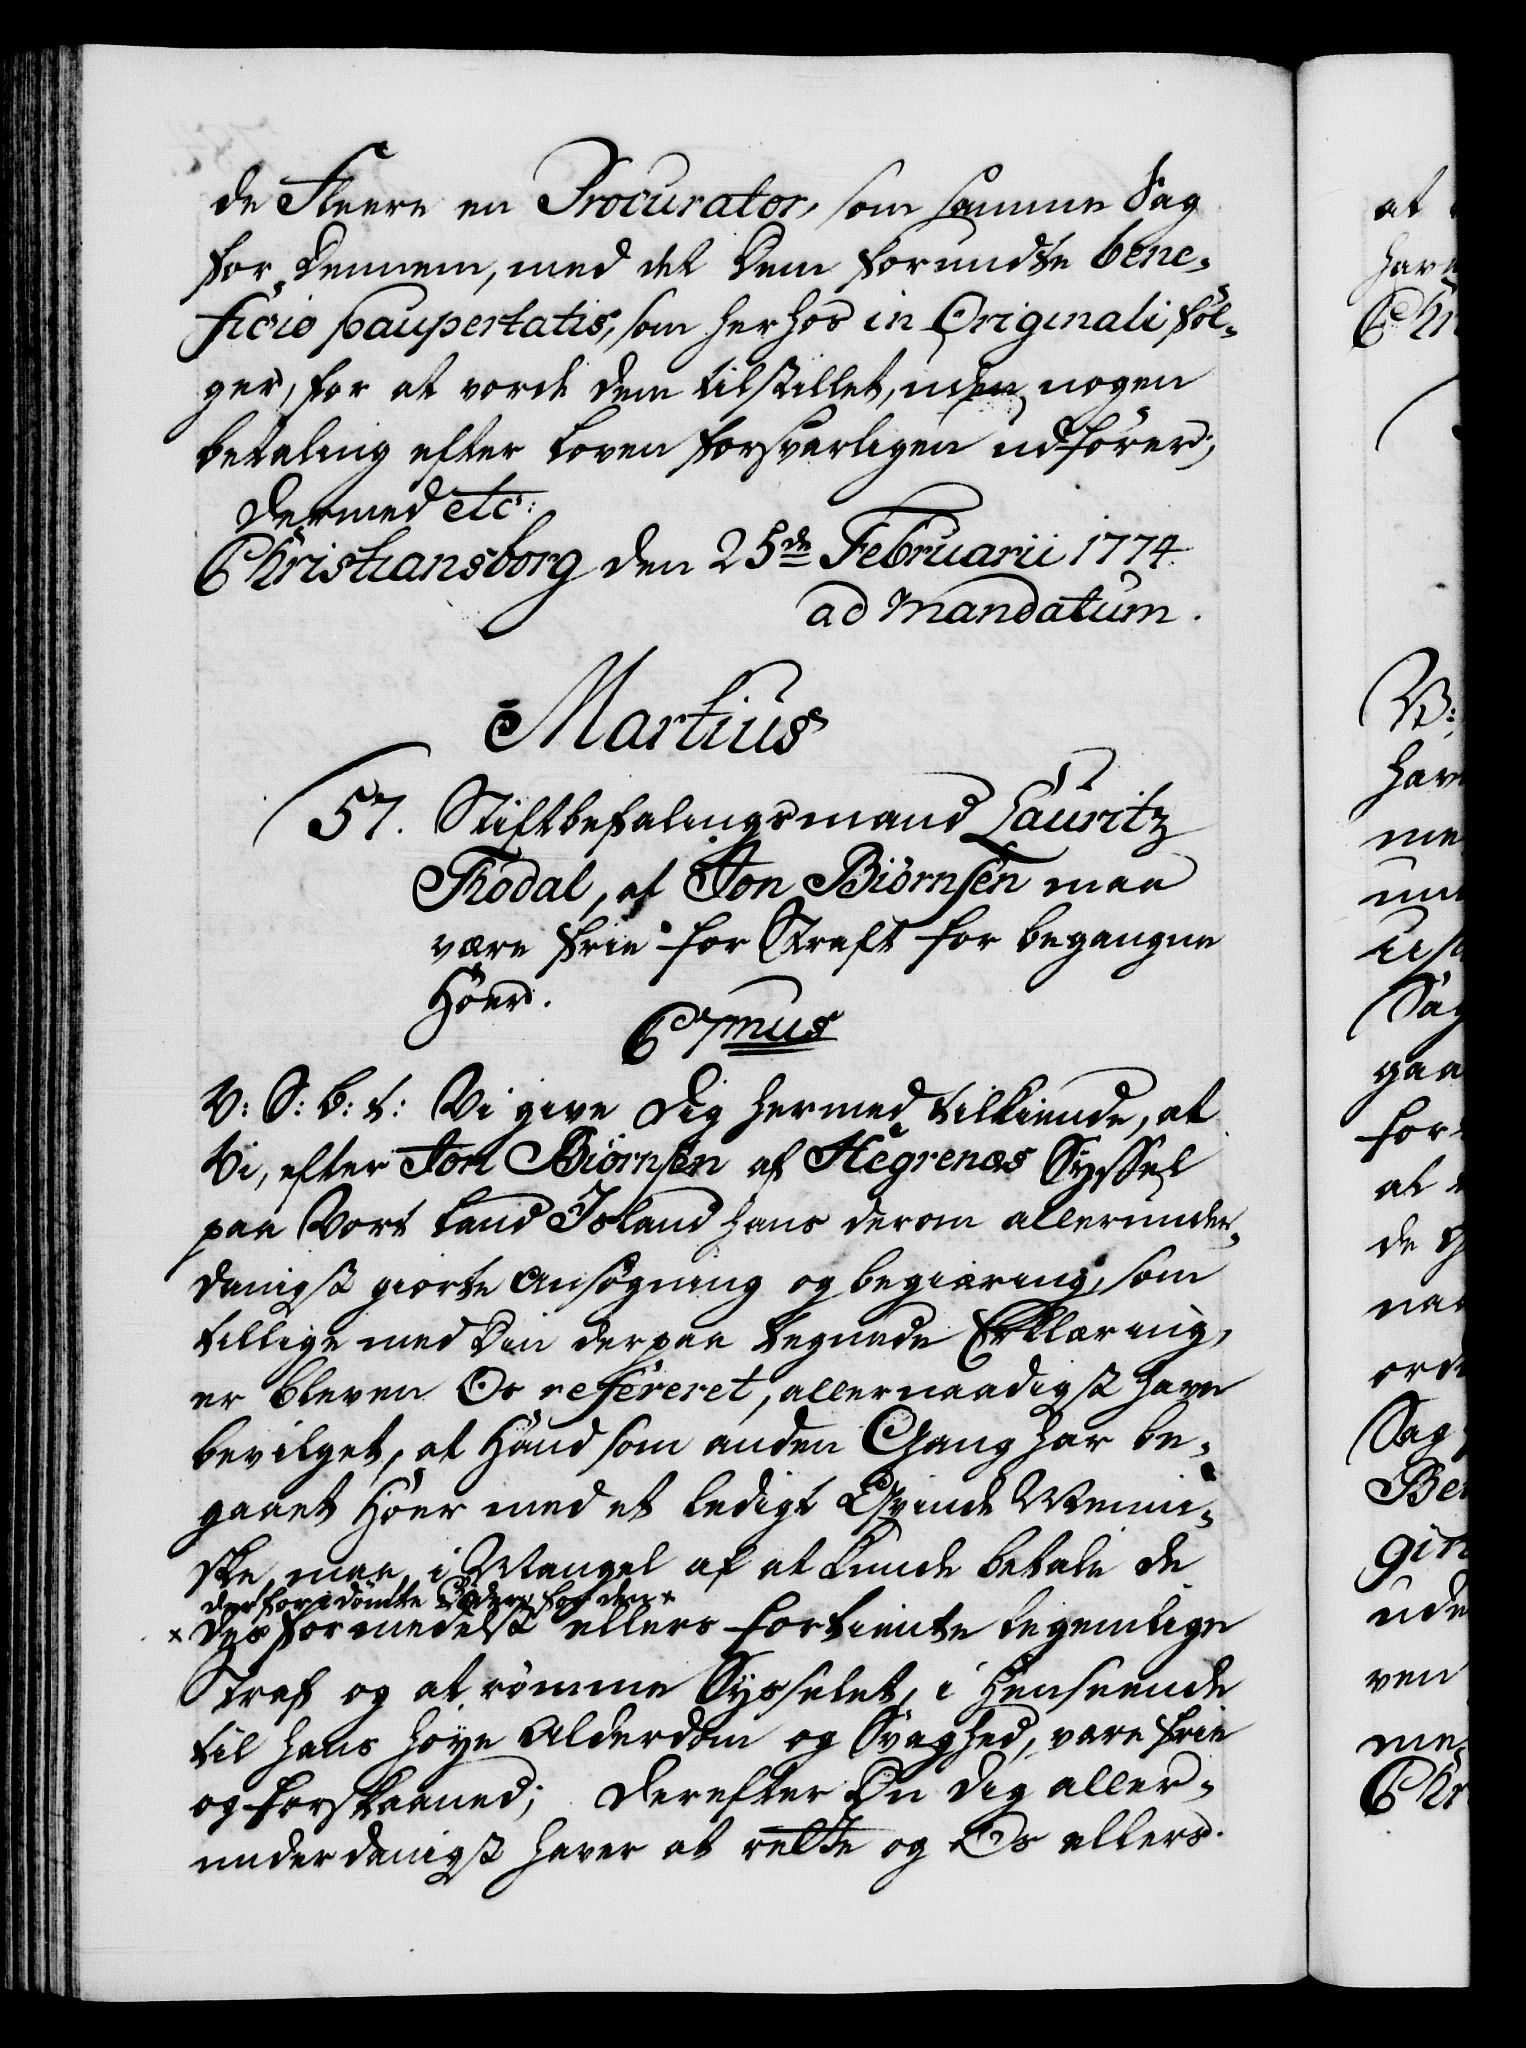 de Fleere en Procurator, som samme Sag
for Dennem, med det dem forundte bene-
ficio paupertatis, som herhos in Originali föl-
ger, for at vorde dem tilstillet, uden nogen
betaling efter Loven forsvarligen udförer;
Dermed etc:
Christiansborg den 25de Februarii 1774.
ad mandatum.
Martius
57. Stiftbefalingsmand Lauritz
Thodal, at Jon Biörnsen maa
være frie for Straff for begangne
Höer.
C 7mus
V: S: G: t: Vi give Dig hermed tilkiende, at
Vi, efter Jon Biörnsen af Hegrenæs Syssel
paa Vort Land Island hans derom allerunder-
danigst giorte Ansögning og begiæring, som
tillige med Din derpaa tegnede Erklæring,
er bleven Os refereret, allernaadigst have
bevilget, at Hand som anden Gang har be-
gaaet Hoer med et ledigt Qvinde Menni-
ske, maa, i Mangel af at kunde betale de
derfor idömte Böder, for den x
x Desformedelst ellers fortiente legemlige
Straf og at römme Sysselet, i Henseende
til hans höye Alderdom og Svaghed, være frie
og forskaaned; Derefter Du Dig aller-
underdanigst haver at rette og Os ellers.
at
have
Chri
V:
have
me
Sag
gaa
for
at
de
naa
ord
Sag
Be
gi
ude
ven
me
Chr